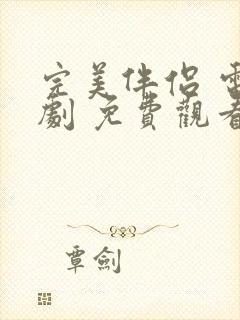 完美伴侶 電
劇 免費觀看
覃劍